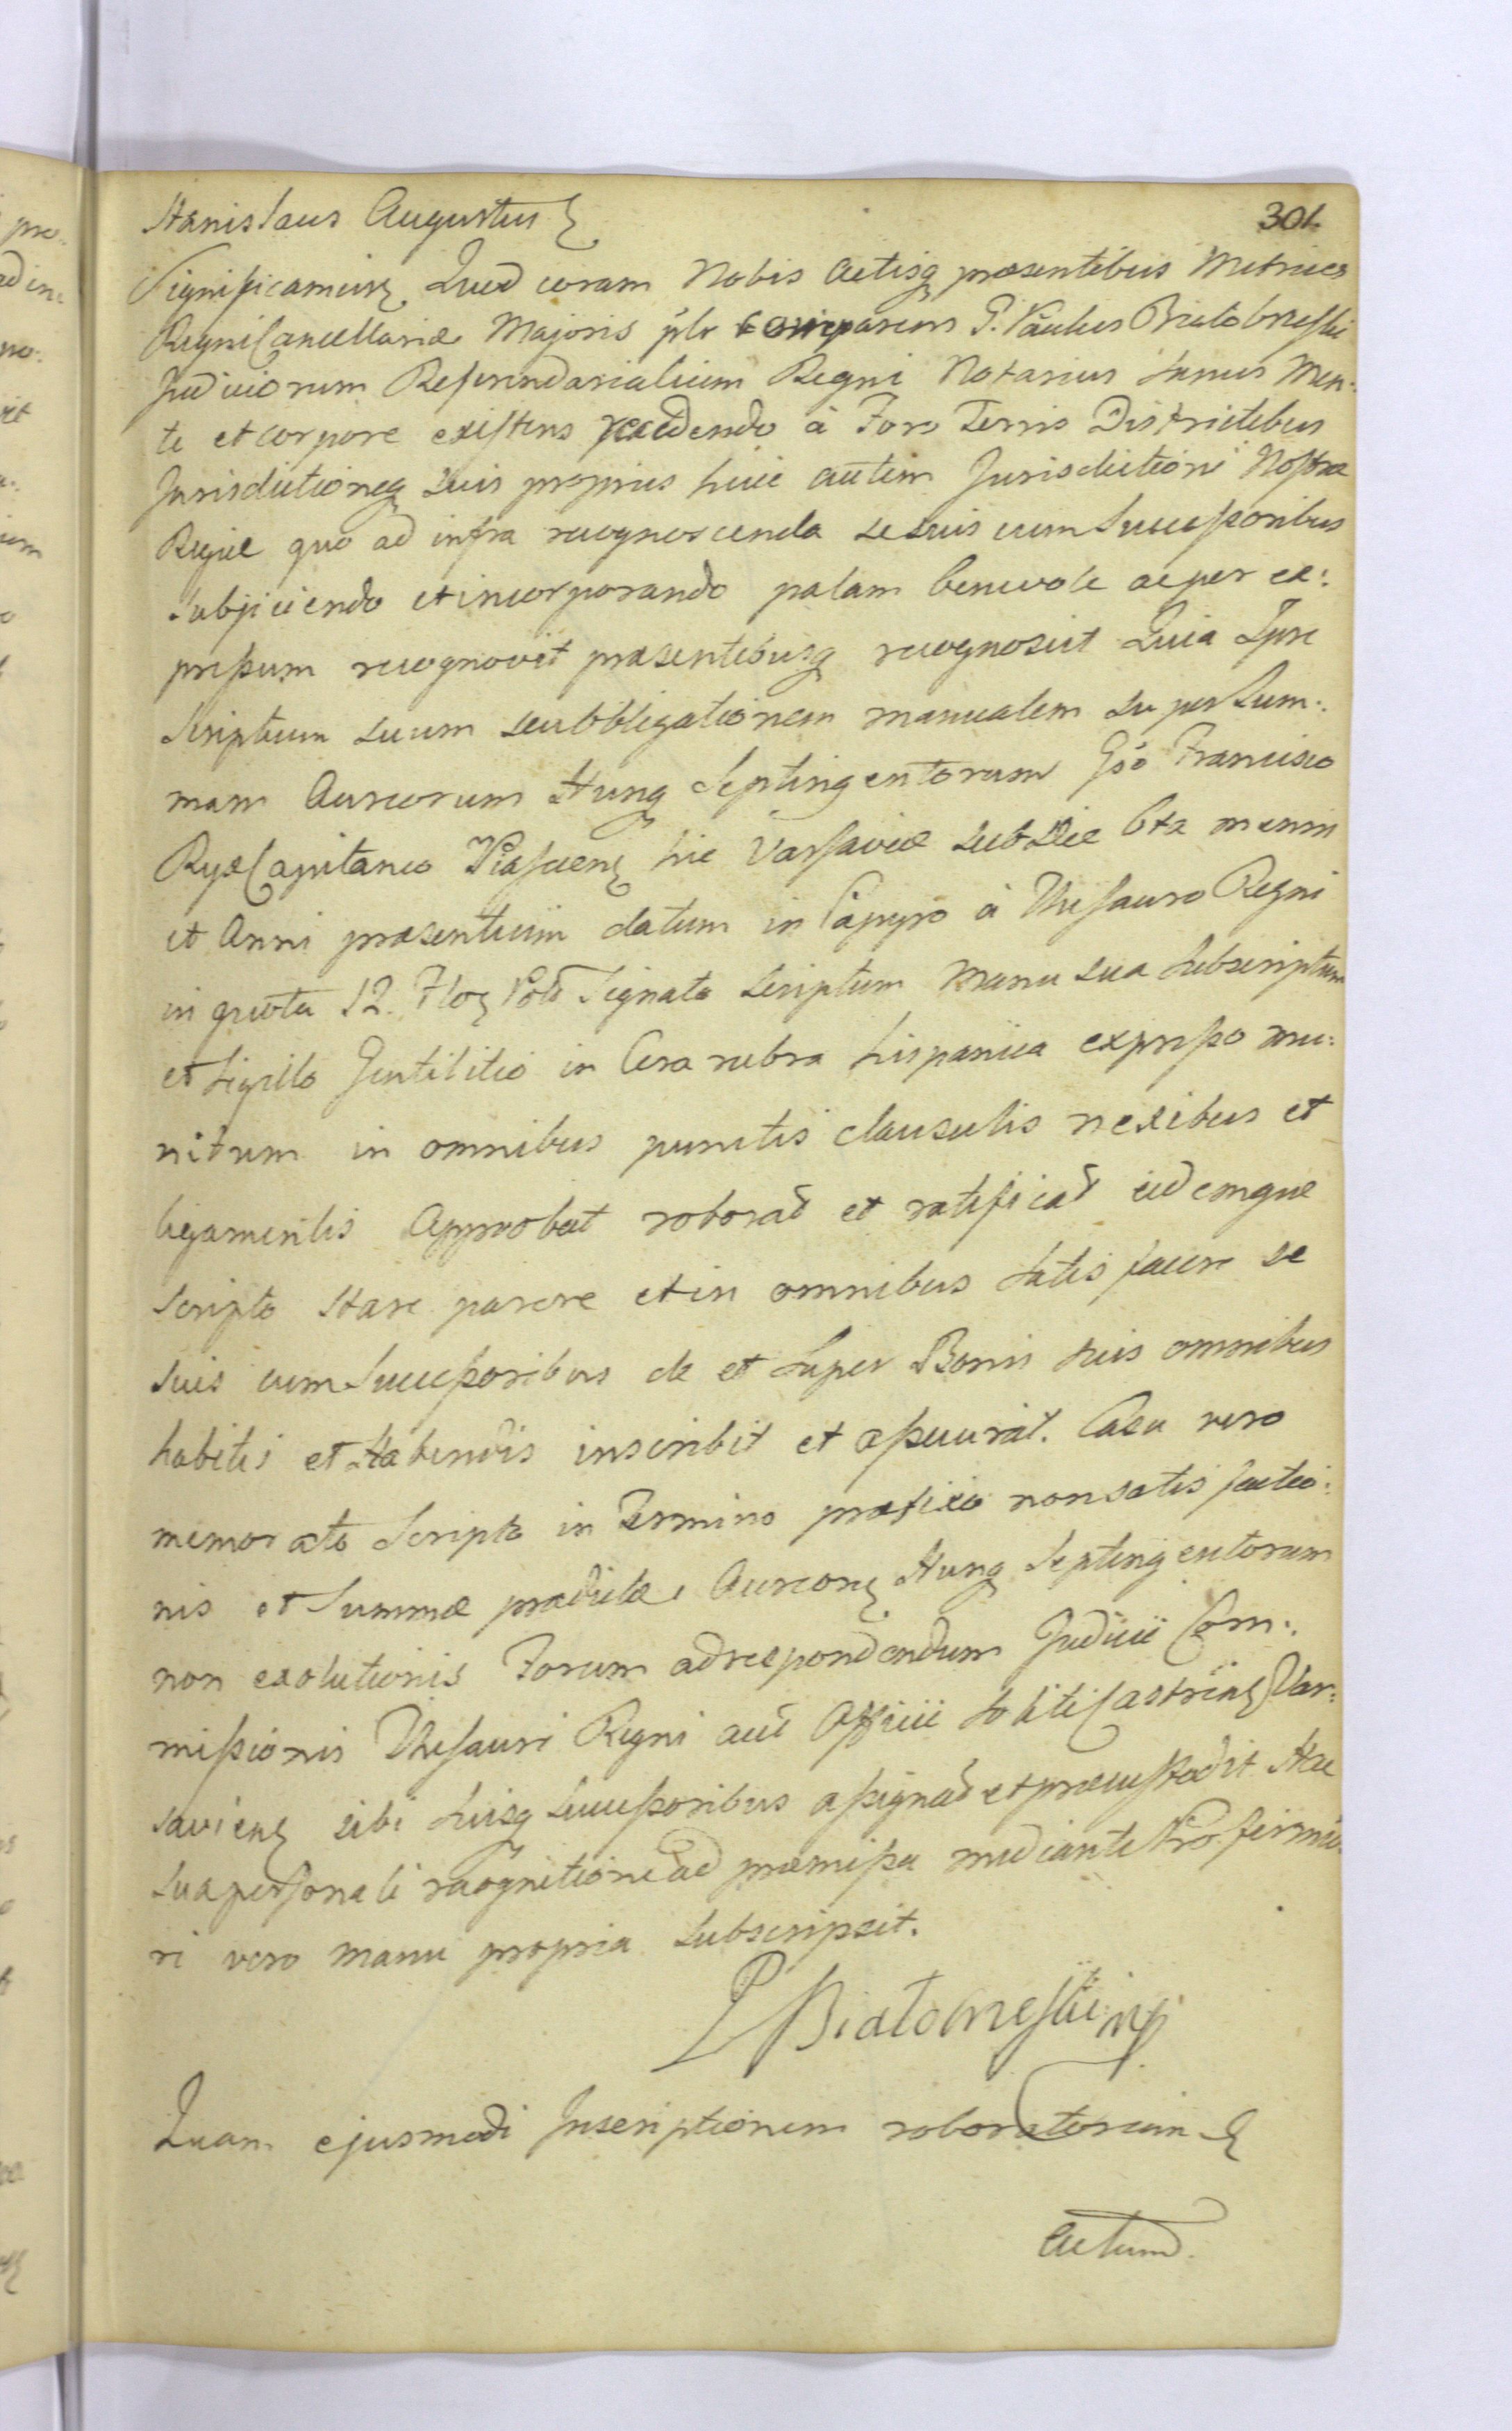 301.
Stanislaus Augustus
Significamus Quod coram Nobis Actisq praesentibus Metrices
Regni Cancellariae Majoris plr comparens G. Paulus Białobrzeski
Judiciorum Referendarialium Regni Notarius sanus Men:
te et corpore existens recedendo à Foro Terris Districtibus
Jurisdictioneq suis propriis huic autem Jurisdictioni Nostrae
Regiae quo ad infra recognoscenda se suis cum Successoribus
subjiciendo et incorporando palam benevole ac per ex:
pressum recognovit praesentibusq recognoscit Quia Ipse
Scriptum suum seu obligationem manualem super Sum:
mam Aureorum Hung Septingentorum Gso Francisco
Ryx Capitaneo Piasecen hic Varsaviae sub die 6ta mensis
et Anni praesentium datum in Papyro à Thesauro Regni
in quota 12. Flor Pol Signato scriptum Manu sua subscriptum
et Sigillo Gentilitio in Cera rubra hispanica expresso mu:
nitum in omnibus punctis clausulis nexibus et
ligamentis Approbat roborat et ratificat eidemque
scripto stare parere et in omnibus satisfacere se
suis cum Successoribus de et super Bonis suis omnibus
habitis et Habendis inscribit et assecurat. Casu vero
memorato Scripto in Termino praefixo non satisfactio:
nis et Summae praedictae Aureor Hung Septingentorum
non exolutionis Forum ad respondendum Judicii Com:
missionis Thesauri Regni aut Officii soliti Castren Var:
savien sibi suisq successoribus assignat et praecustodit Hac
sua personali recognitione ad praemissa mediante Pro firmio:
ri vero manu propria subscripsit.
P Białobrzeski mp
Quam ejusmodi Inscriptionem roboratoriam
Actum.